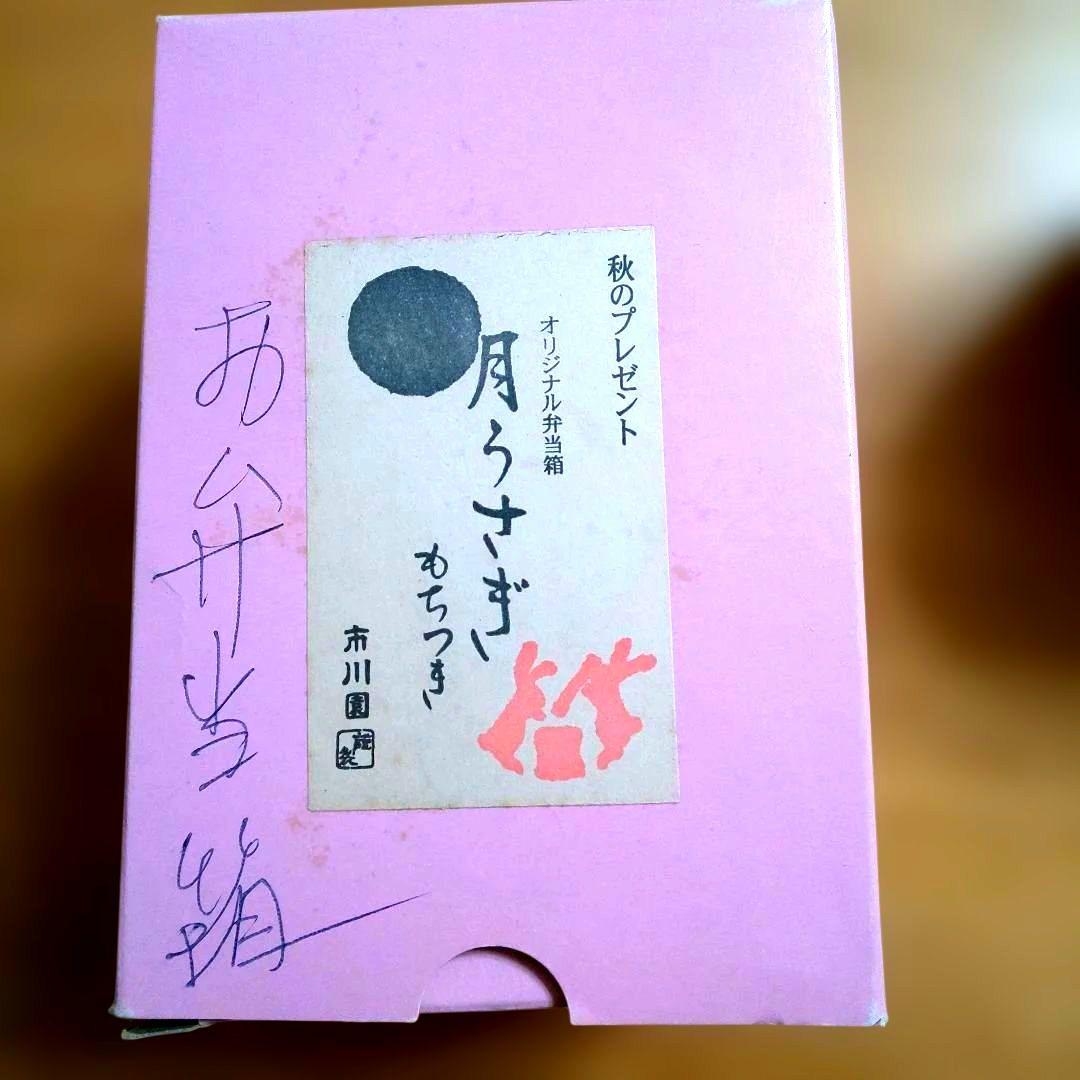 秋のプレゼント
オリジナル弁当箱
月うさぎ
もちつき
市川園
お弁当箱